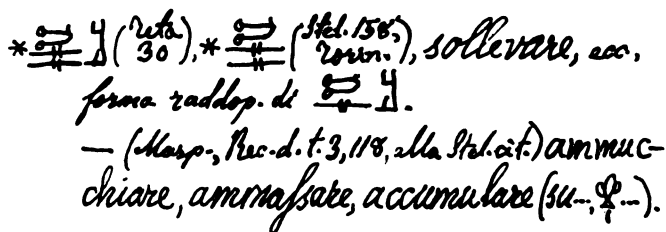 * (reta 30), * (Stel. 158, Torin.), sollevare, ecc,
forma raddop. di .
— (Masp., Rec. d. t. 3, 118, alla Stel. cit.) ammuc-
chiare, ammassare, accumulare (su..., ...).